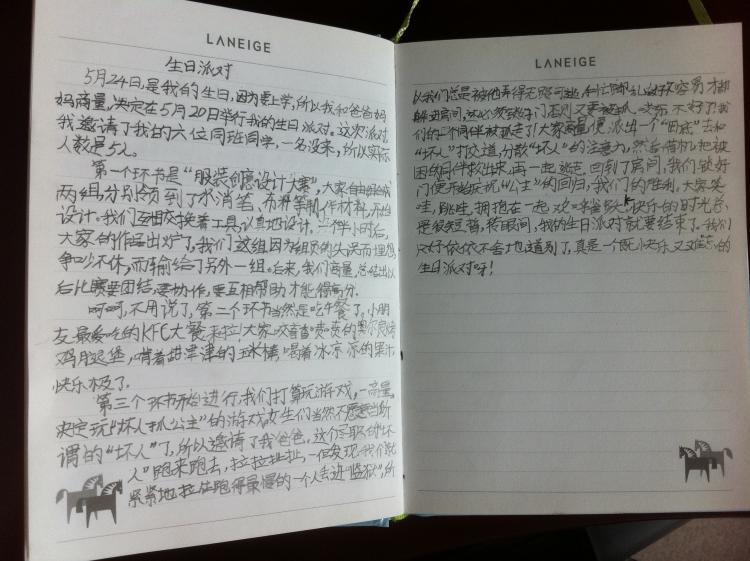 LANEIGE
生日派对
5月24日,是我的生日,因为要上学,所以我和爸爸妈
妈商量,决定在5月20日举行我的生日派对。这次派对
我邀请了我的六位同班同学,一名没来,所以实际
人数是5人。
第一个环节是“服装创意设计大赛”,大家自由组成
两组分别领到了水消笔、布料等制作材料,开始
设计。我们互相交换着工具,认真地设计。半小时后,
大家的作品出炉了。我们这组因为组员的失误而埋怨
争吵不休,而输给了另外一组。后来,我们商量,总结出以
后比赛要团结,要协作,要互相帮助才能得高分。
呵呵,不用说了,第二个环节当然是吃午餐了。小朋
友最爱吃的KFC大餐来拉!大家咬着香喷喷的奥尔良烤
鸡腿堡,啃着甜津津的玉米棒,喝着冰凉凉的果汁,
快乐极了。
第三个环节开始进行,我们打算玩游戏,一商量,
决定玩“坏人抓公主”的游戏,女生们当然不愿意当所
谓的“坏人”了,所以邀请了我爸爸,这个尽职的“坏
人”跑来跑去,拉拉扯扯,一但发现我们就
紧紧地拉住跑得最慢的一个人丢进“监狱”,所
LANEIGE
以我们总是被他弄得无路可逃,手忙脚乱,好不容易才都
躲进房间,还必须锁好门否则又要被抓。哎呀,不好了!我
们的一个同伴被抓走了!大家商量便派出一个“卧底”去和
“坏人”打交道,分散“坏人”的注意力,然后借机把被
困的同伴救出来,再一起逃走。回到了房间,我们锁好
门便开始庆祝“公主”的回归,我们的胜利,大家笑
哇,跳哇,拥抱在一起,欢呼雀跃。快乐的时光总
是很短暂,转眼间,我的生日派对就要结束了。我们
只好依依不舍地道别了,真是一个既快乐又难忘的
生日派对呀!